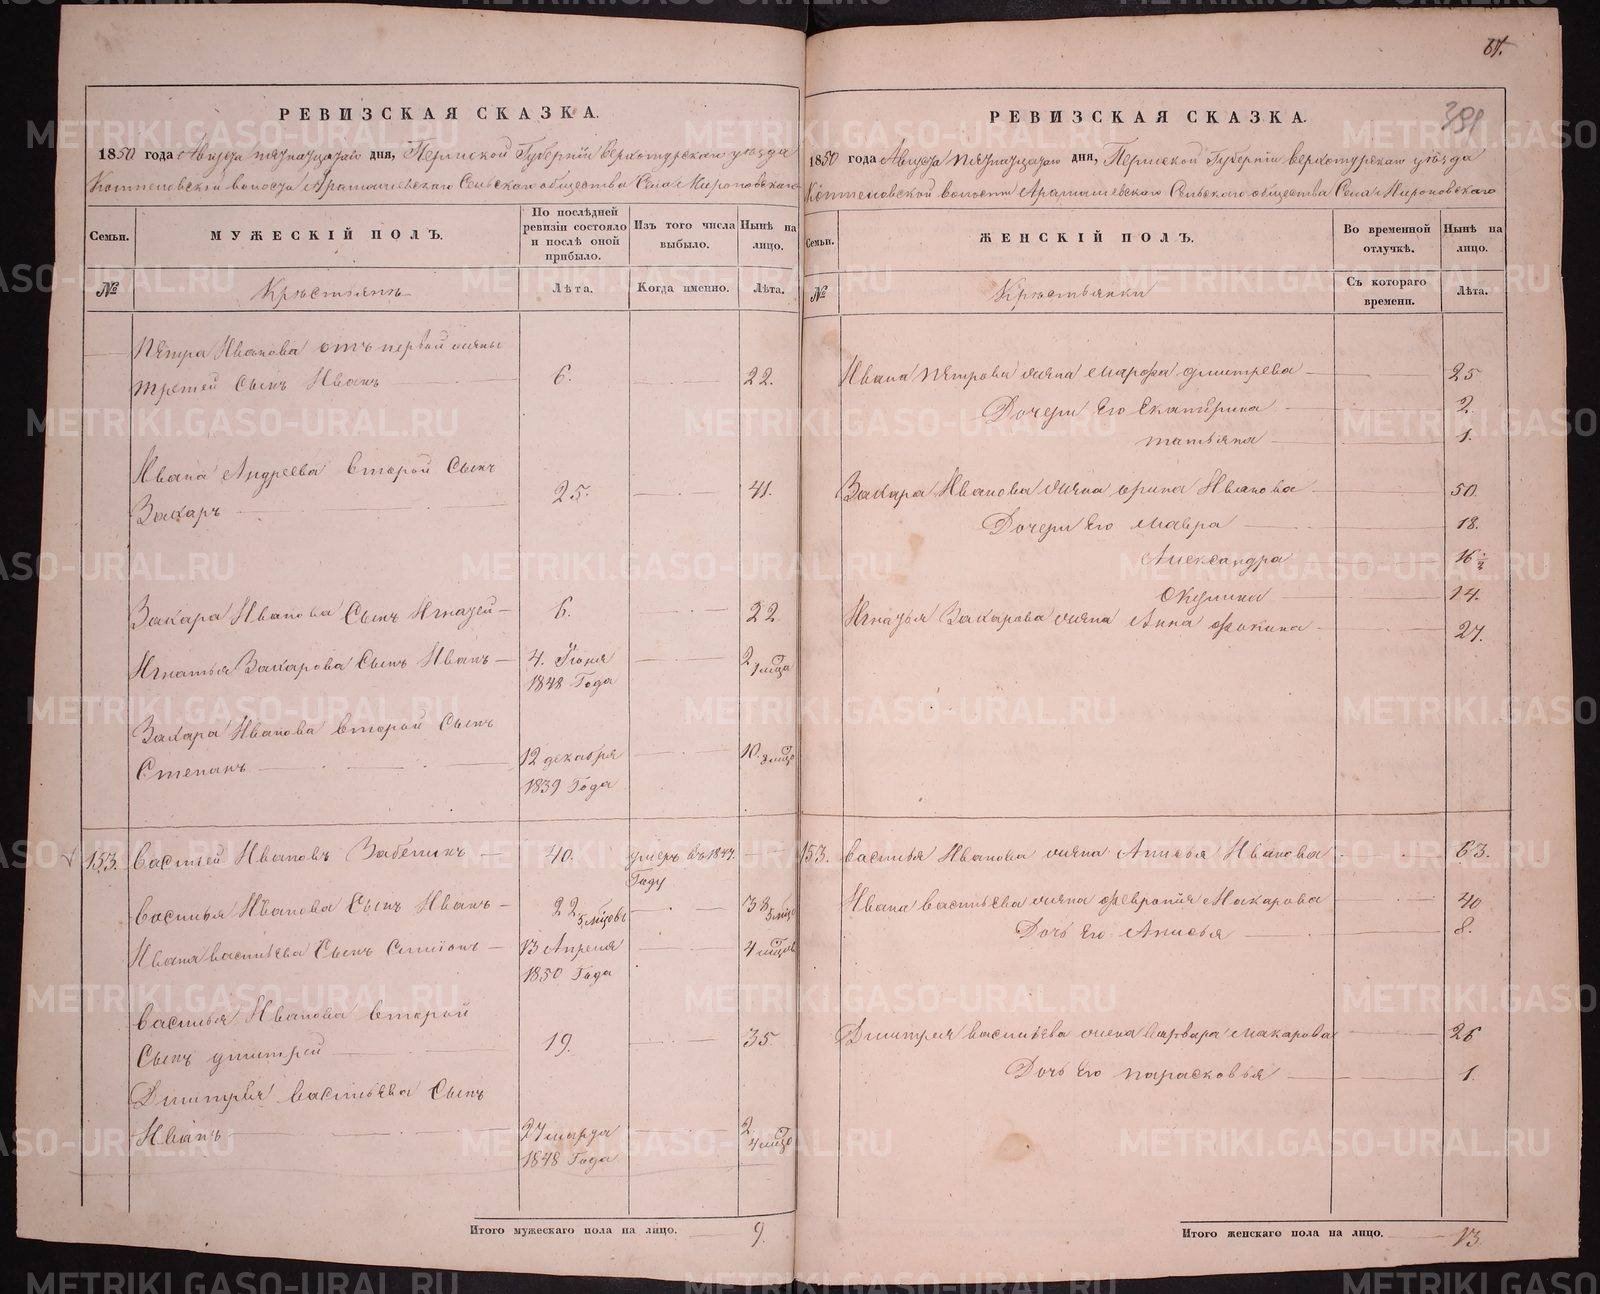 67.
391
РЕВИЗСКАЯ СКАЗКА.
1850 года Августа пятнадцатаго дня, Пермской Губернiи Верхотурскаго уѣзда
Коптеловской волости Арамашевскаго Сельскаго общества Села Мироновскаго
Семьи.
МУЖЕСКIЙ ПОЛЪ.
По послѣдней ревизiи состояло и послѣ оной прибыло.
Изъ того числа выбыло.
Нынѣ на лицо.
№
Крестьянъ
Лѣта.
Когда именно.
Лѣта.
Петра Иванова отъ первой жены
третей сынъ Иванъ 6. 22.
Ивана Андреева второй сынъ
Захаръ 25. 41.
Захара Иванова сынъ Игнатей 6. 22.
Игнатья Захарова сынъ Иванъ 4. Iюня 2
1848 Года
Захара Иванова второй сынъ
Степанъ 12 декабря 10.
1839 Года
153. Василей Ивановъ Забелинъ 40. умеръ въ 1847.
Году
Василья Иванова сынъ Иванъ 22 5 мѣцовъ 38
Ивана Васильева сынъ Симiонъ 13 Апреля 4
1850 Года
Василья Иванова второй
сынъ дмитрей 19. 35.
Дмитрiя Васильева сынъ
Иванъ 27 марта 2.
1848 Года
Итого мужескаго пола на лицо. 9.
РЕВИЗСКАЯ СКАЗКА.
1850 года Августа пятнадцатаго дня, Пермской Губернiи Верхотурскаго уѣзда
Коптеловской волости Арамашевскаго Сельскаго общества Села Мироновскаго
Семьи.
ЖЕНСКIЙ ПОЛЪ.
Во временной отлучкѣ.
Нынѣ на лицо.
№
Крестьянки
Съ котораго времени.
Лѣта.
Ивана Петрова жена Марфа дмитрева 25
Дочери его Екатерина 2.
татьяна 1.
Захара Иванова жена орина Иванова 50
Дочери его Мавра 18.
Александра 16 1/2
Окулина 14.
Игнатья Захарова жена Анна фокина 27.
153. Василья Иванова жена Анисья Иванова 63.
Ивана Васильева жена феврония Макарова 40
Дочь его Анисья 8.
Дмитрея Васильева жена варвара макарова 26
Дочь его парасковья 1.
Итого женскаго пола на лицо. 13.
METRIKI.GASO-URAL.RU